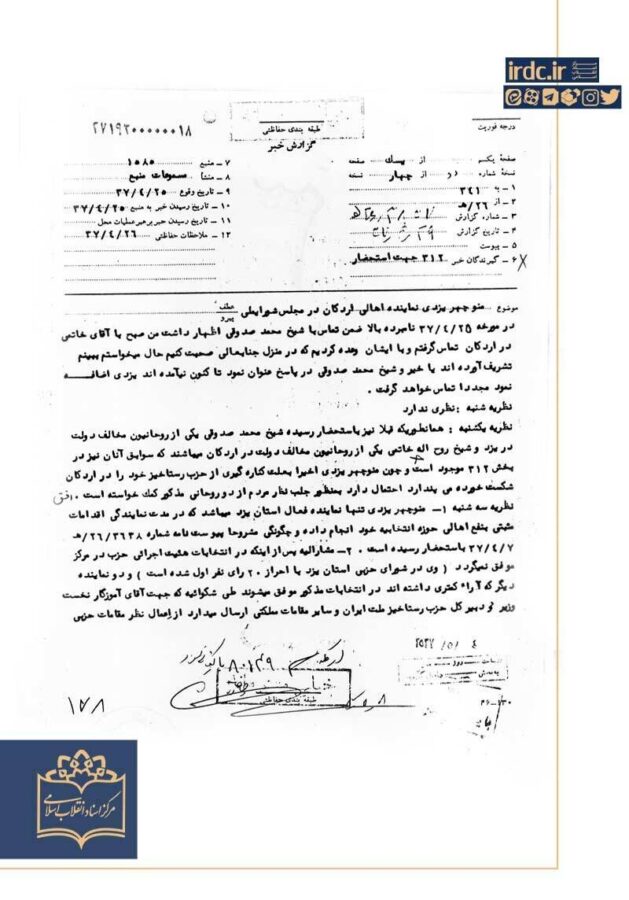 irdc.ir
271930000018
طبقه بندی حفاظتی
گزارش خبر
درجه فوریت
صفحه یکم از یسك صفحه
نسخه شماره دو از چهار نسخه
۱ - به ۳۴۱
۲ - از ۲۶/هـ
۳ - شماره گزارش
۴ - تاریخ گزارش
۵ - پیوست
۶ - گیرندگان خبر ۳۱۲ جهت استحضار
۷ - منبع ۱۰۸۵
۸ - منشأ مسموعات منبع
۹ - تاریخ وقوع ۳۷/۴/۲۵
۱۰ - تاریخ رسیدن خبر به منبع ۳۷/۴/۲۵
۱۱ - تاریخ رسیدن خبر برهبر عملیات محل
۱۲ - ملاحظات حفاظتی ۳۷/۴/۲۶
موضوع منوچهر یزدی نماینده اهالی اردکان در مجلس شورایملی عطف پیرو
در مورخه ۳۷/۴/۲۵ نامبرده بالا ضمن تماس با شیخ محمد صدوقی اظهار داشت من صبح با آقای خاتمی
در اردکان تماس گرفتم و با ایشان وعده کردیم که در منزل جنابعالی صحبت کنیم حال میخواستم ببینم
تشریف آورده اند یا خیر و شیخ محمد صدوقی در پاسخ عنوان نمود تا کنون نیامده اند یزدی اضافــه
نمود مجددا تماس خواهد گرفت .
نظریه شنبه : نظری ندارد
نظریه یکشنبه : همانطوریکه قبلا نیز باستحضار رسیده شیخ محمد صدوقی یکی از روحانیون مخالف دولت
در یزد و شیخ روح اله خاتمی یکی از روحانیون مخالف دولت در اردکان میباشند که سوابق آنان نیز در
بخش ۳۱۲ موجود است و چون منوچهر یزدی اخیرا بعلت کناره گیری از حزب رستاخیز خود را در اردکان
شکست خورده می پندارد احتمال دارد بمنظور جلب نظر مردم از دو روحانی مذکور کمك خواسته است . افق
نظریه سه شنبه ۱- منوچهر یزدی تنها نماینده فعال استان یزد میباشد که در مدت نمایندگی اقدامات
مثبتی بنفع اهالی حوزه انتخابیه خود انجام داده و چگونگی مشروحا پیوست نامه شماره ۲۶/۳۶۳۸/هـ
۳۷/۴/۷ باستحضار رسیده است . ۲- مشارالیه پس از اینکه در انتخابات هیئت اجرائی حزب در مرکز
موفق نمیگردد ( وی در شورای حزبی استان یزد با احراز ۲۰ رای نفر اول شده است ) و دو نماینده
دیگر که آراء کمتری داشته اند در انتخابات مذکور موفق میشوند طی شکوائیه که جهت آقای آموزگار نخست
وزیر و دبیر کل حزب رستاخیز ملت ایران و سایر مقامات مملکتی ارسال میدارد از اعمال نظر مقامات حزبی
طبقه بندی حفاظتی
۱۷۸
مرکز اسناد انقلاب اسلامی